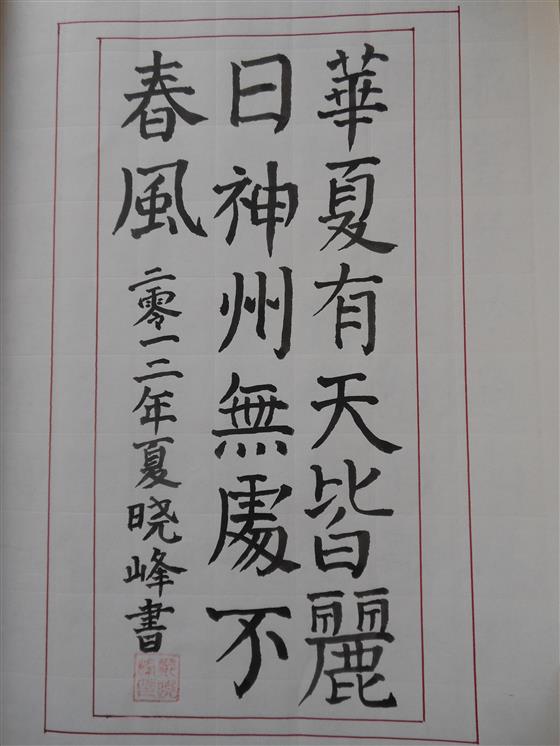 華夏有天皆麗
日神州無處不
春風
二零一二年夏晓峰書